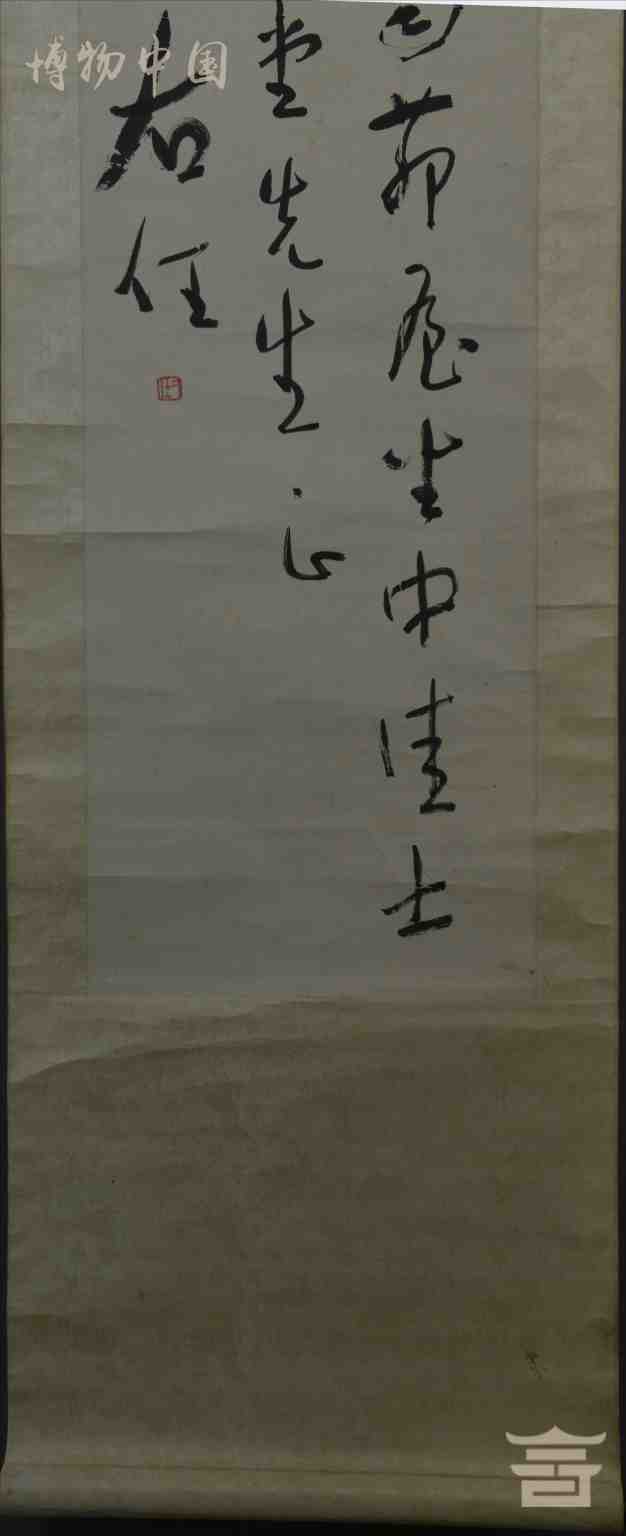 茆屋坐中佳士
堂先生正
右任
博物中国